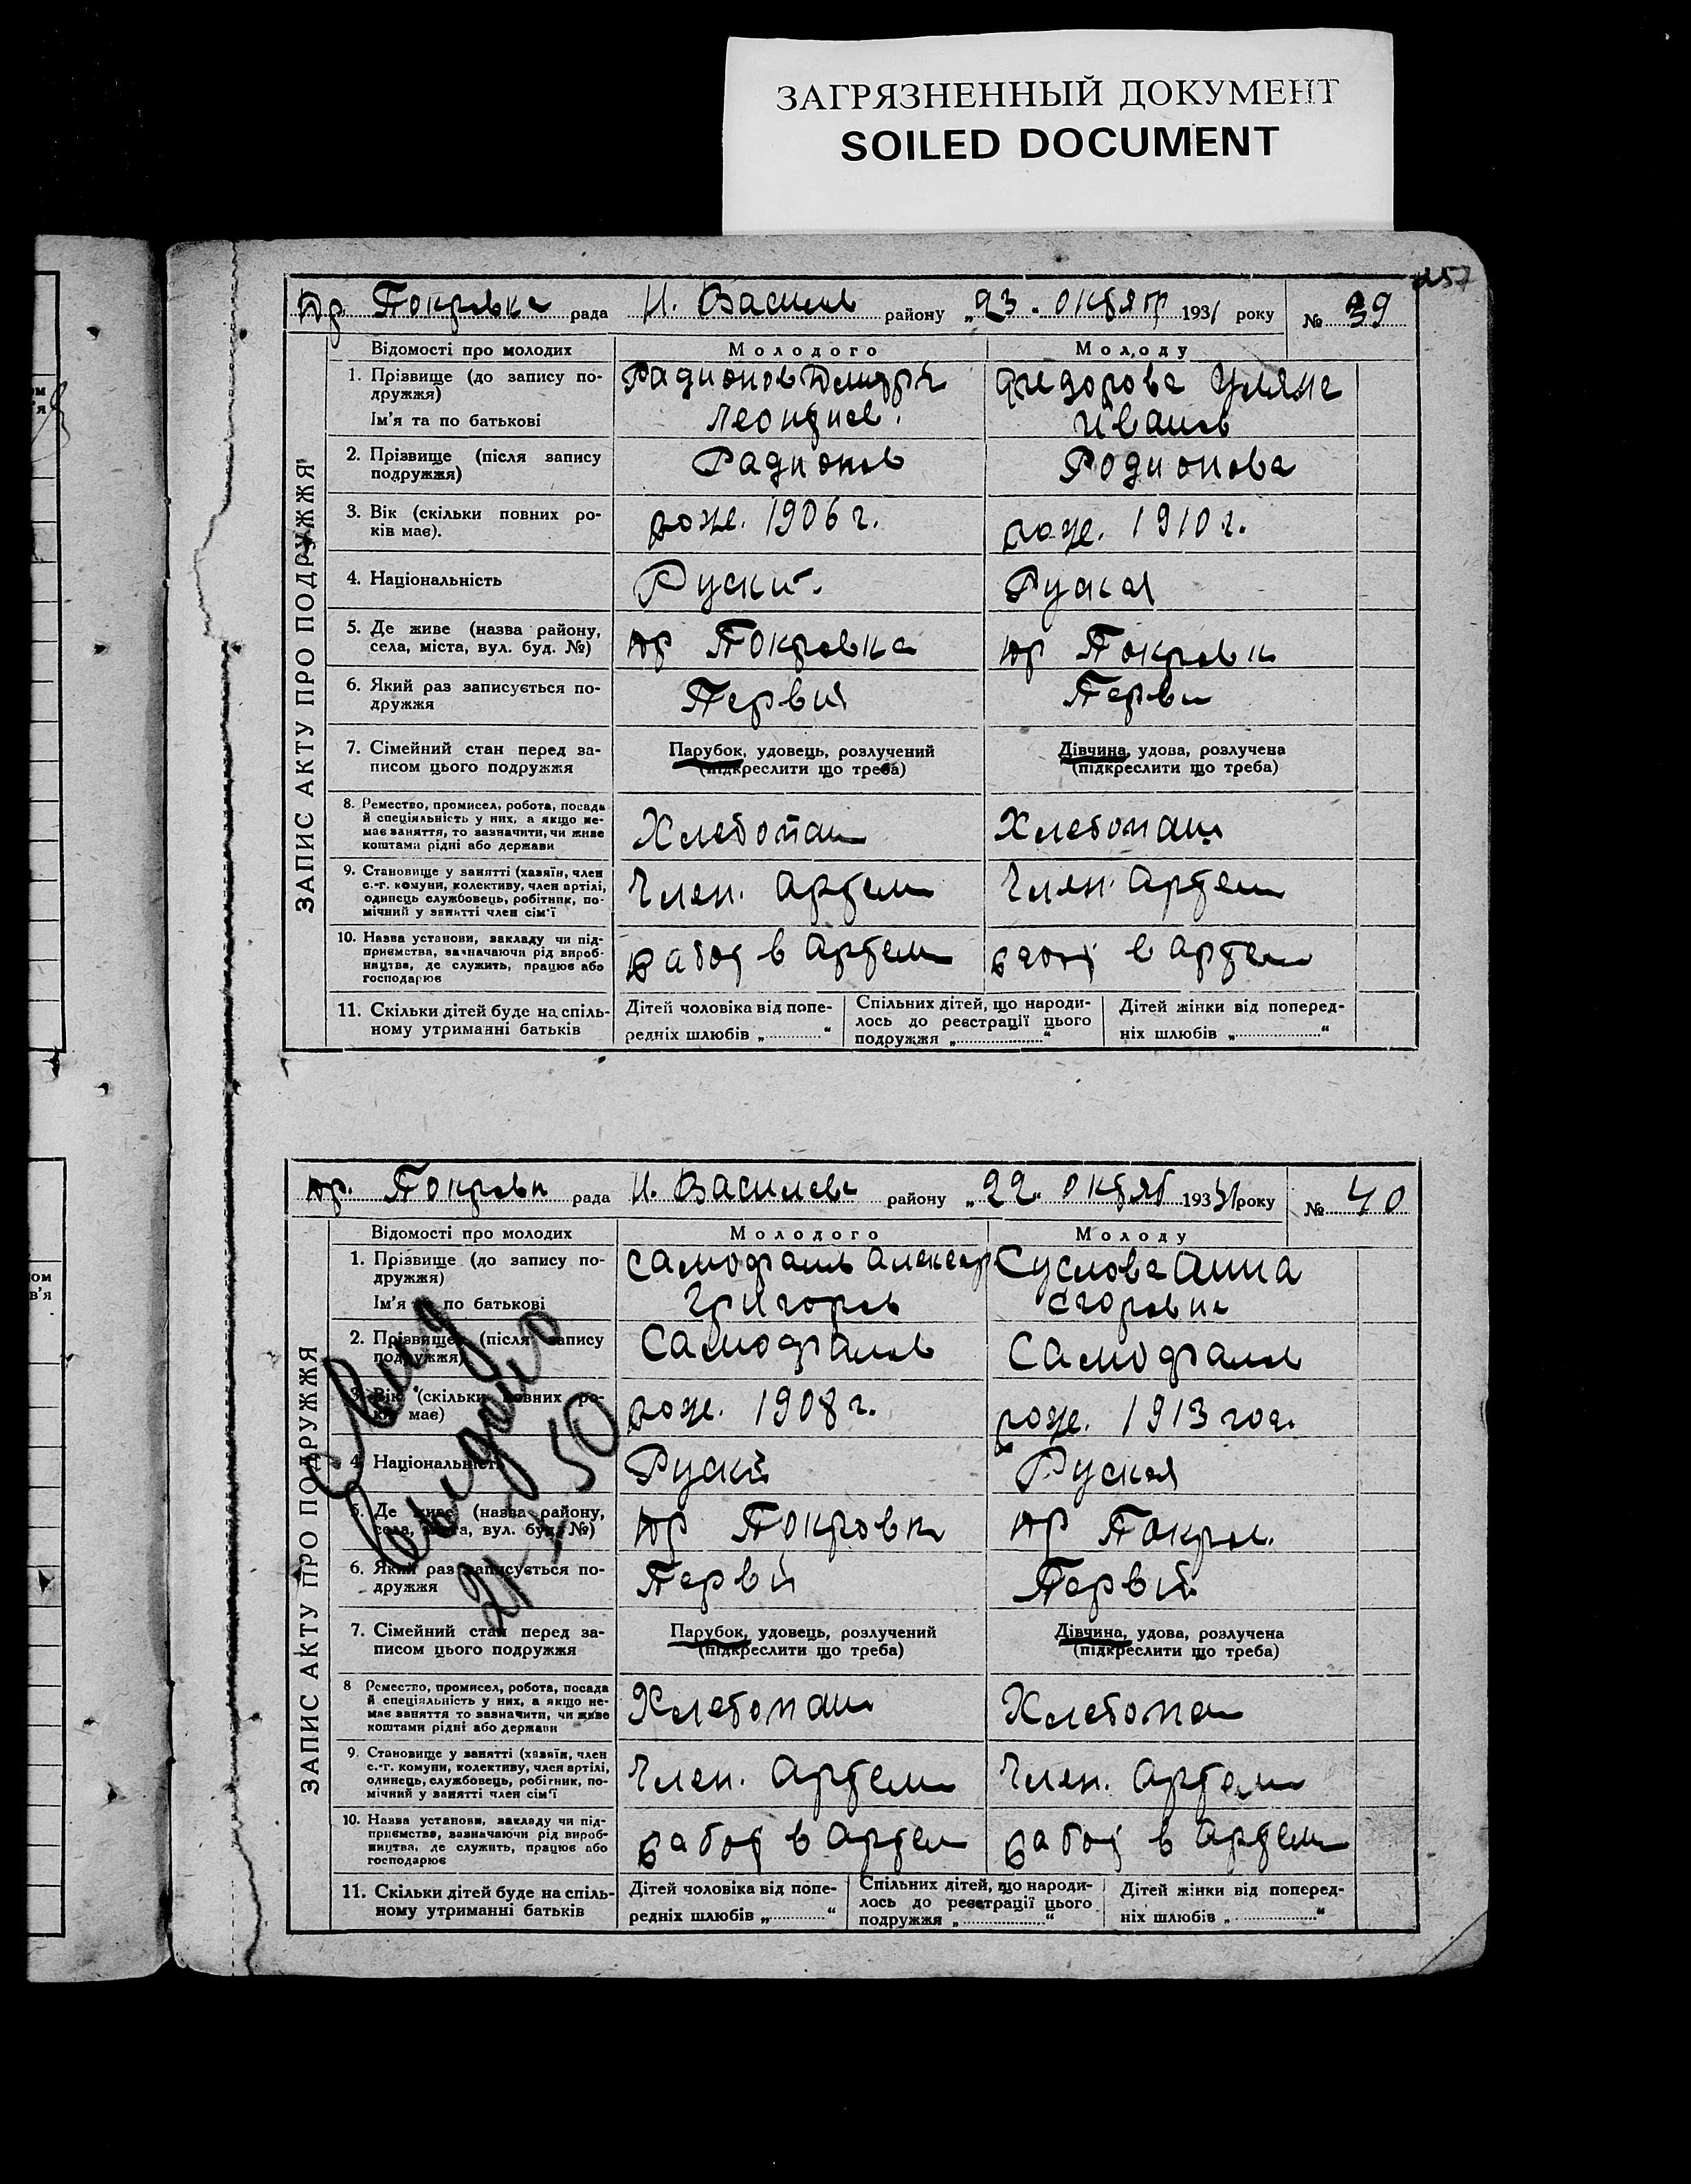 ЗАГРЯЗНЕННЫЙ ДОКУМЕНТ
SOILED DOCUMENT
257
Юр. Покровка рада Н. Васил района „23. октяр 1931 року № 39
ЗАПИС АКТУ ПРО ПОДРУЖЖЯ
Відомості про молодих Молодого Молоду
1. Прізвище (до запису по-
дружжя)
Ім'я та по батькові
Радионов Дмитрй
Леонтиев.
Федорова Уляна
Иванов
2. Прізвище (після запису
подружжя)
Радионов Родионова
3. Вік (скільки повних ро-
ків має).
рож. 1906 г. рож. 1910 г.
4. Національність Руский. Руская
5. Де живе (назва району,
села, міста, вул. буд. №)
юр Покровка юр Покровк
6. Який раз записується по-
дружжя
Первий Перви
7. Сімейний стан перед за-
писом цього подружжя
Парубок, удовець, розлучений
(підкреслити що треба)
Дівчина, удова, розлучена
(підкреслити що треба)
8. Ремество, промисел, робота, посада
й спеціяльність у них, а якщо не-
має заняття, то зазначити, чи живе
коштами рідні або держави
Хлебопаш Хлебопаш
9. Становище у занятті (хазяїн, член
с.-г. комуни, колективу, член артілі,
одинець службовець, робітник, по-
мічний у занятті член сім'ї
Член. Артели Член. Артели
10. Назва установи, закладу чи під-
приємства, зазначаючи рід вироб-
ництва, де служить, працює або
господарює
работ в Артели работ в Артели
11. Скільки дітей буде на спіль-
ному утриманні батьків
Дітей чоловіка від попе-
редніх шлюбів „ “
Спільних дітей, що народи-
лось до реєстрації цього
подружжя „ “
Дітей жінки від поперед-
ніх шлюбів „ “
юр. Покровк рада Н. Василева району „22. октяб 1931 року № 40
ЗАПИС АКТУ ПРО ПОДРУЖЖЯ
Відомості про молодих Молодого Молоду
1. Прізвище (до запису по-
дружжя)
Ім'я по батькові
Самофалв Александ
Григоров
Суслова Анна
Егоровна
2. Прізвище (після запису
подружжя)
Самофалов Самофалов
3. Вік (скільки повних ро-
ків має)
рож. 1908 г. рож. 1913 год.
4. Національність Руский Руская
5. Де живе (назва району,
села, міста, вул. буд. №)
юр Покровк юр Покров.
6. Який раз записується по-
дружжя
Первий Первий
7. Сімейний стан перед за-
писом цього подружжя
Парубок, удовець, розлучений
(підкреслити що треба)
Дівчина, удова, розлучена
(підкреслити що треба)
8 Ремество, промисел, робота, посада
й спеціяльність у них, а якщо не-
має заняття то зазначити, чи живе
коштами рідні або держави
Хлебопаш Хлебопаш
9. Становище у занятті (хазяїн, член
с.-г. комуни, колективу, член артілі,
одинець, службовець, робітник, по-
мічний у занятті член сім'ї
Член. Артели Член. Артели
10. Назва установи, закладу чи під-
приємства, зазначаючи рід вироб-
ництва, де служить, працює або
господарює
работ в Артел работ в Артели
11. Скільки дітей буде на спіль-
ному утриманні батьків
Дітей чоловіка від попе-
редніх шлюбів „ “
Спільних дітей, що народи-
лось до реєстрації цього
подружжя „ “
Дітей жінки від поперед-
ніх шлюбів „ “